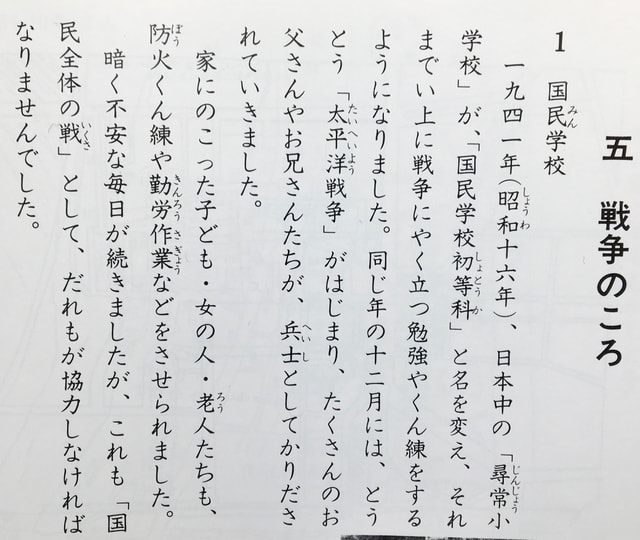 五 戦争のころ
1 国民学校
一九四一年(昭和十六年)、日本中の「尋常小
学校」が、「国民学校初等科」と名を変え、それ
までい上に戦争にやく立つ勉強やくん練をする
ようになりました。同じ年の十二月には、とう
とう「太平洋戦争」がはじまり、たくさんのお
父さんやお兄さんたちが、兵士としてかりださ
れていきました。
家にのこった子ども・女の人・老人たちも、
防火くん練や勤労作業などをさせられました。
暗く不安な毎日が続きましたが、これも「国
民全体の戦」として、だれもが協力しなければ
なりませんでした。